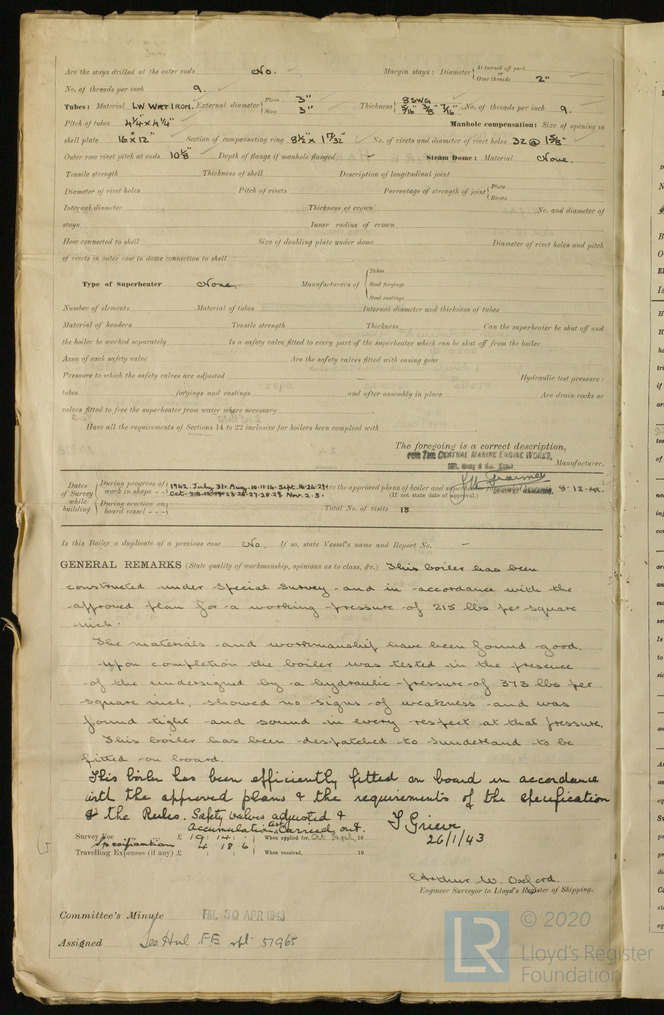 Are the stays drilled at the outer ends No. Margin stays: Diameter { At turned off part or Over threads 2"
No. of threads per inch 9.
Tubes: Material LW WRT IRON. External diameter { Plain 3" Stay 3" Thickness { 8 SWG 5/16" 3/8" 7/16" No. of threads per inch 9.
Pitch of tubes 4¼" x 4¼" Manhole compensation: Size of opening in
shell plate 16" x 12" Section of compensating ring 8½" x 1 17/32" No. of rivets and diameter of rivet holes 32 @ 1 5/8"
Outer row rivet pitch at ends 10 1/8" Depth of flange if manhole flanged - Steam Dome: Material None.
Tensile strength Thickness of shell Description of longitudinal joint
Diameter of rivet holes Pitch of rivets Percentage of strength of joint { Plate Rivets
Internal diameter Thickness of crown No. and diameter of
stays Inner radius of crown
How connected to shell Size of doubling plate under dome Diameter of rivet holes and pitch
of rivets in outer row in dome connection to shell
Type of Superheater None. Manufacturers of { Tubes Steel forgings Steel castings
Number of elements Material of tubes Internal diameter and thickness of tubes
Material of headers Tensile strength Thickness Can the superheater be shut off and
the boiler be worked separately Is a safety valve fitted to every part of the superheater which can be shut off from the boiler
Area of each safety valve Are the safety valves fitted with easing gear
Pressure to which the safety valves are adjusted Hydraulic test pressure:
tubes forgings and castings and after assembly in place Are drain cocks or
valves fitted to free the superheater from water where necessary
Have all the requirements of Sections 14 to 22 inclusive for boilers been complied with
The foregoing is a correct description,
FOR THE CENTRAL MARINE ENGINE WORKS,
Manufacturer.
Dates of Survey while building { During progress of work in shops - - 1942. July 31. Aug. Sept. Oct. Nov. 2. 5. Are the approved plans of boiler and (If not state date of approval.) 8-12-
During erection on board vessel - - - Total No. of visits 18
Is this Boiler a duplicate of a previous case No. If so, state Vessel's name and Report No. -
GENERAL REMARKS (State quality of workmanship, opinions as to class, &c.) This boiler has been
constructed under special survey and in accordance with the
approved plan for a working pressure of 215 lbs per square
inch.
The materials and workmanship have been found good.
Upon completion the boiler was tested in the presence
of the undersigned by a hydraulic pressure of 373 lbs per
square inch, showed no signs of weakness and was
found tight and sound in every respect at that pressure.
This boiler has been despatched to Sunderland to be
fitted on board.
This boiler has been efficiently fitted on board in accordance
with the approved plans & the requirements of the specification
& the Rules. Safety valves adjusted &
accumulation test carried out. J Grieve
26/1/43
Survey Fee £ 19 : 14 : When applied for, 19
Specification 4 18 6
Travelling Expenses (if any) £ : : When received, 19
Arthur W. Oxford.
Engineer Surveyor to Lloyd's Register of Shipping.
Committee's Minute FRI. 30 APR 1943
Assigned See Hul F.E. rpt 57965
LR © 2020
Lloyd's Register
Foundation